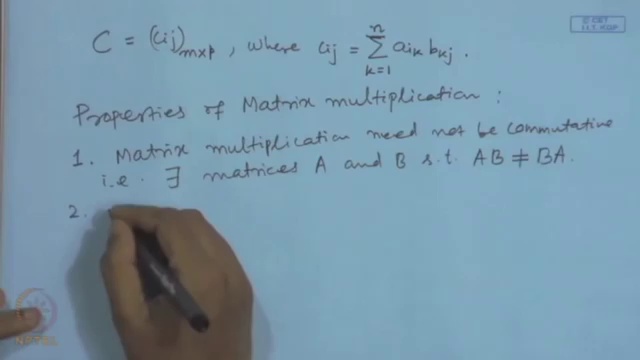 © CET
I.I.T. KGP
C = (cij)m×p, where cij = ∑_{k=1}^{n} aik bkj.
Properties of Matrix multiplication :
1. Matrix multiplication need not be commutative
i.e. ∃ matrices A and B s.t. AB ≠ BA.
2.
NPTEL